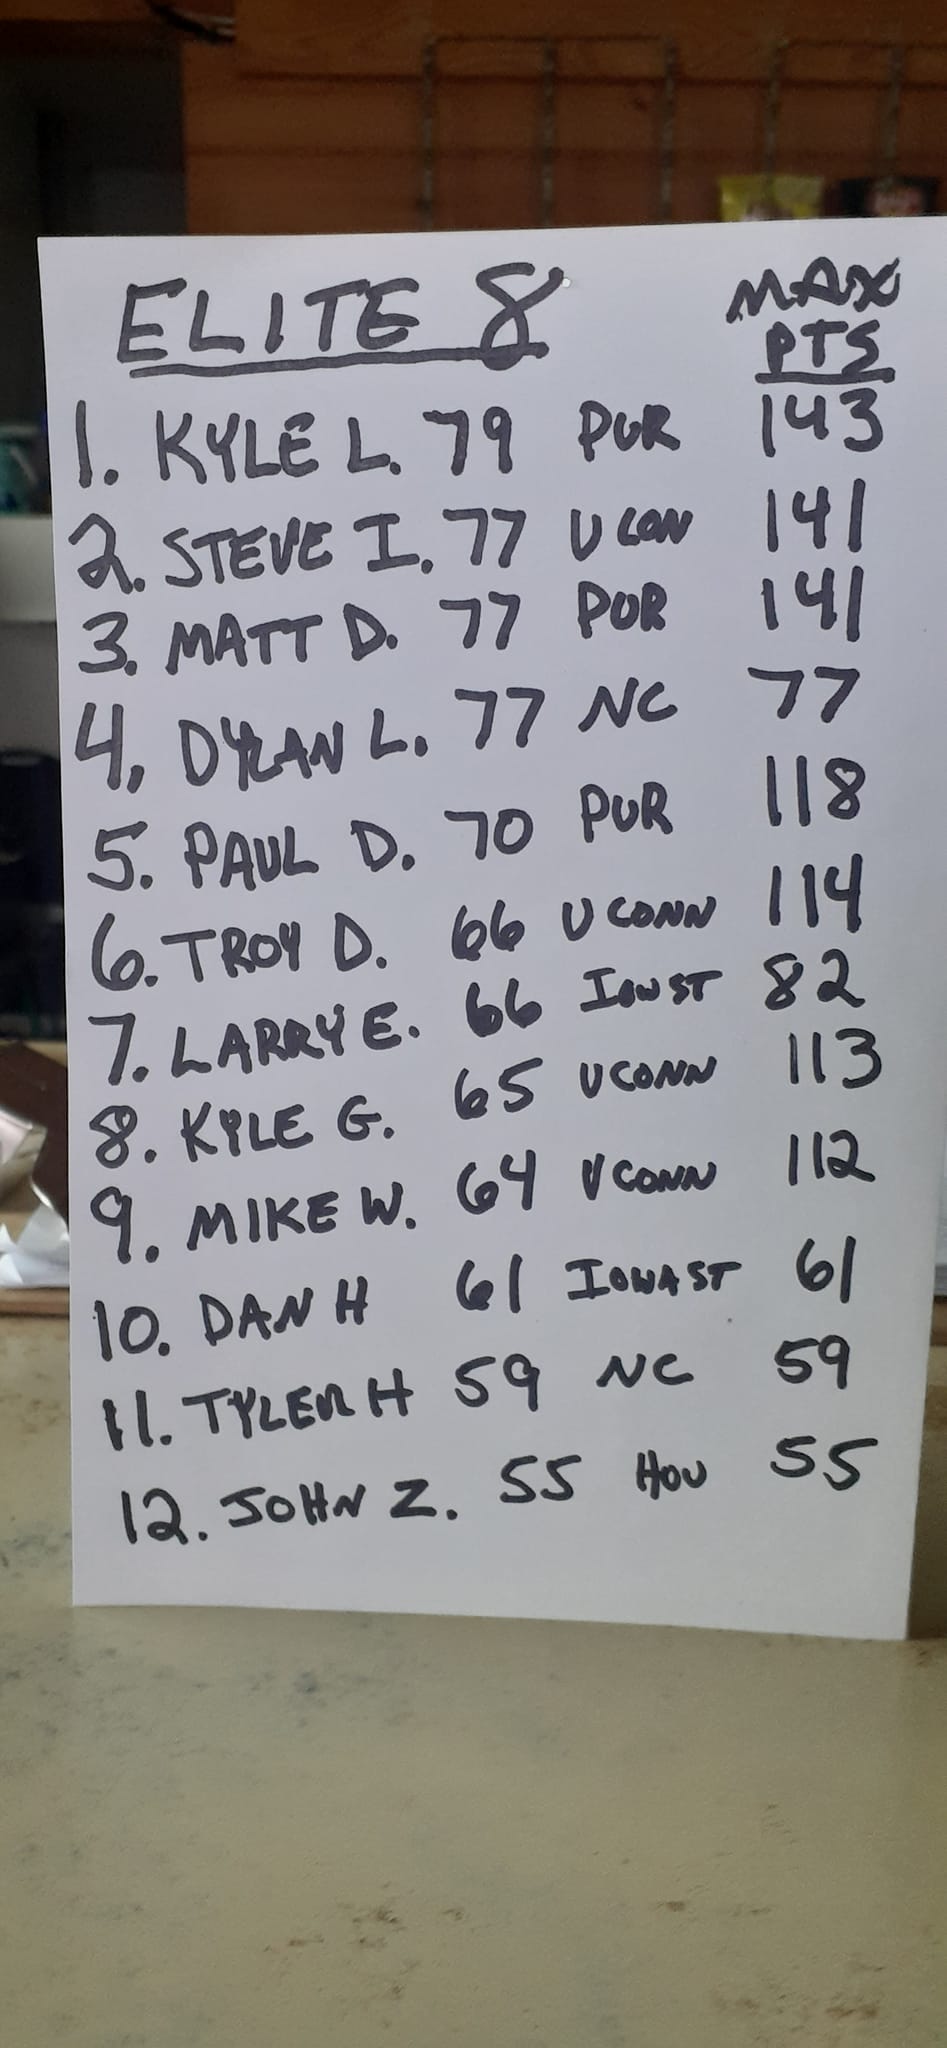 ELITE 8 MAX
PTS
1. KYLE L. 79 PUR 143
2. STEVE I. 77 UCON 141
3. MATT D. 77 PUR 141
4. DYLAN L. 77 NC 77
5. PAUL D. 70 PUR 118
6. TROY D. 66 UCONN 114
7. LARRY E. 66 IOWST 82
8. KYLE G. 65 UCONN 113
9. MIKE W. 64 UCONN 112
10. DAN H 61 IOWA ST 61
11. TYLER H 59 NC 59
12. JOHN Z. 55 HOU 55